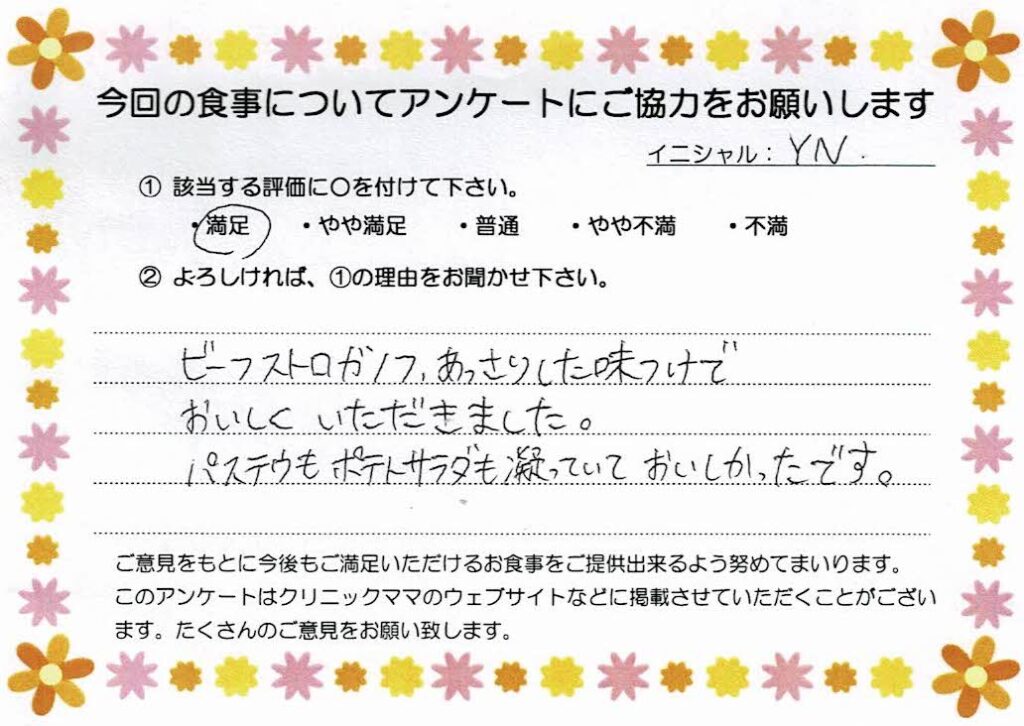 今回の食事についてアンケートにご協力をお願いします
イニシャル：YN.
① 該当する評価に〇を付けて下さい。
・満足 ・やや満足 ・普通 ・やや不満 ・不満
② よろしければ、①の理由をお聞かせ下さい。
ビーフストロガノフ,あっさりした味つけで
おいしく いただきました。
パステウもポテトサラダも凝っていて おいしかったです。
ご意見をもとに今後もご満足いただけるお食事をご提供出来るよう努めてまいります。
このアンケートはクリニックママのウェブサイトなどに掲載させていただくことがござい
ます。たくさんのご意見をお願い致します。